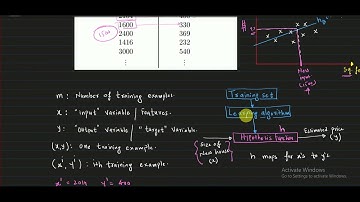 2104 400
1600 330
1500
2400 369
1416 232
3000 540
⋮ ⋮
H
New
input
(1500)
m: Number of training examples.
x: "input" variable / features.
y: "output" variable / "target" variable.
(x,y): one training example.
(xⁱ, yⁱ): ith training example.
x¹ = 2104 y¹ = 400
Training set
Learning algorithm
h
Hypothesis function
Size of
new house
(x)
Estimated price
(y)
h maps for x's to y's
Activate Windows
Go to Settings to activate Windows.